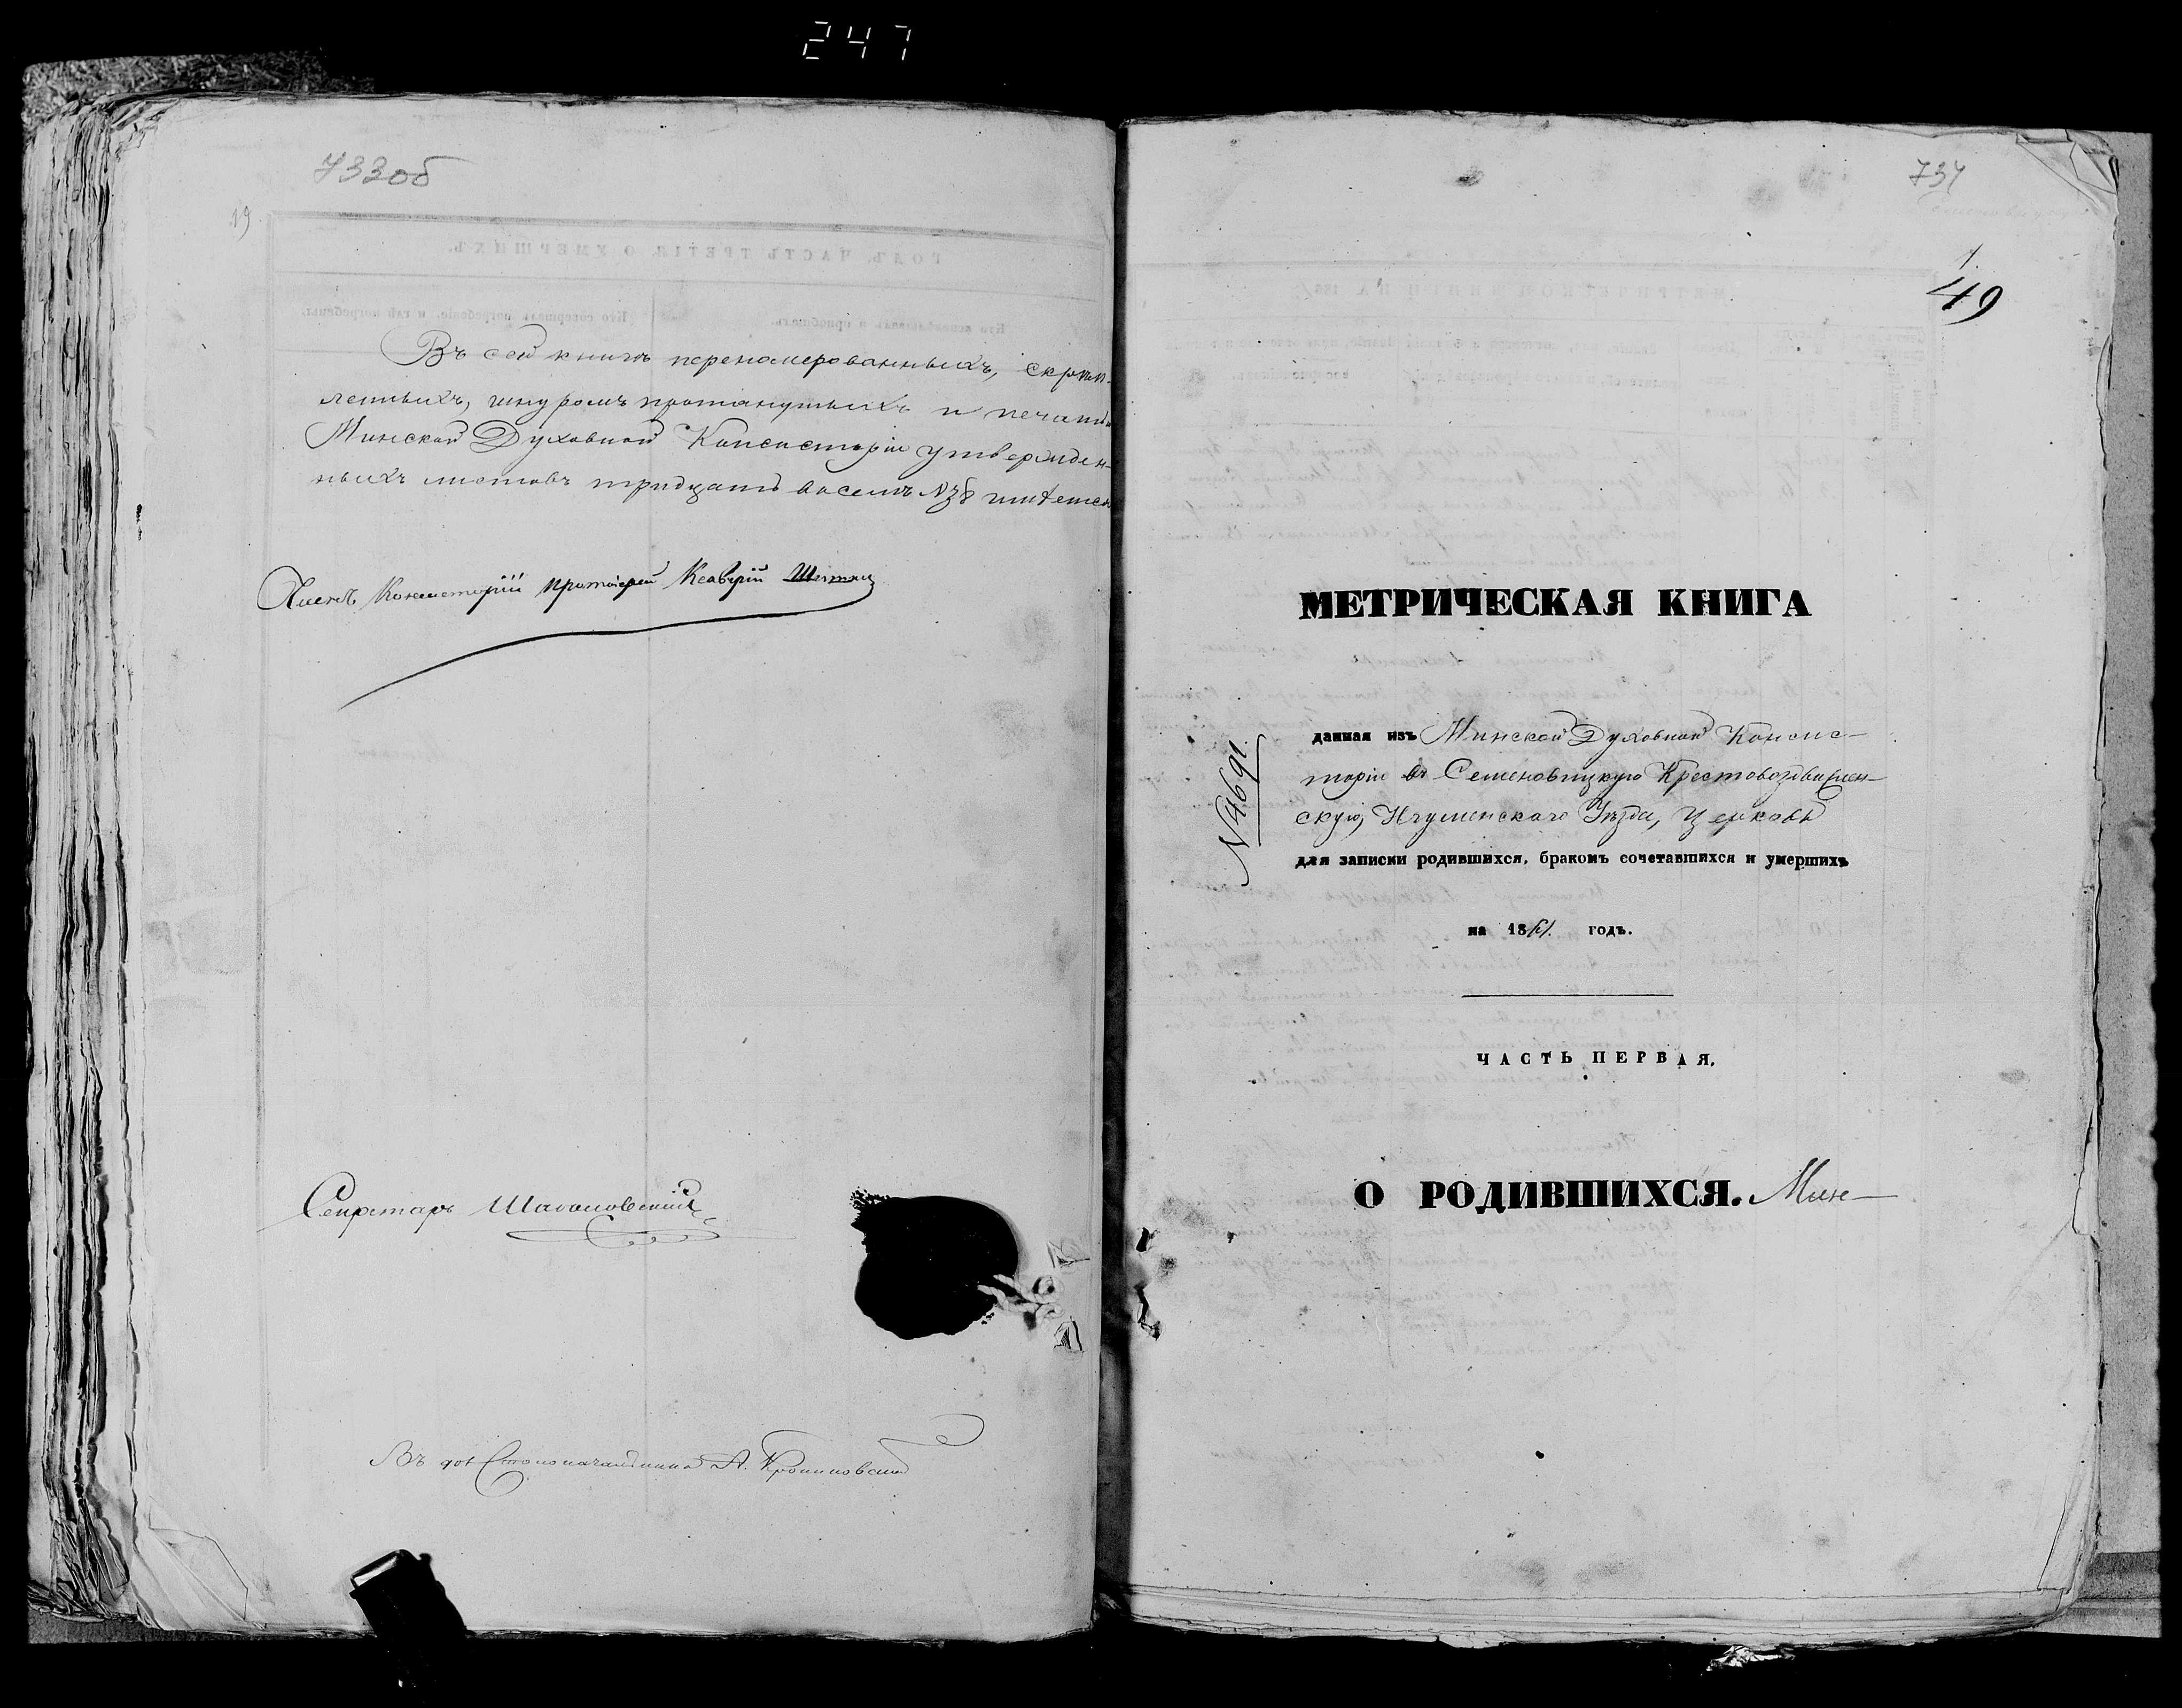 247
733об
19
Въ сей книгѣ переномерованныхъ, скрѣп-
ленныхъ, шнуромъ протянутыхъ и печатью
Минской Духовной Консисторіи утвержден-
ныхъ листовъ тридцать восемь №38 имѣется
Членъ Консисторіи протоіерей Ксаверій
Секретарь
Въ дол Столоначальника А.
734
1.
49
МЕТРИЧЕСКАЯ КНИГА
№4691.
данная изъ Минской Духовной Консис-
торіи въ Семеновицкую Крестовоздвижен-
скую, Игуменскаго Уѣзда, Церковь
для записки родившихся, бракомъ сочетавшихся и умершихъ
на 1861. годъ.
ЧАСТЬ ПЕРВАЯ.
О РОДИВШИХСЯ. Мин-